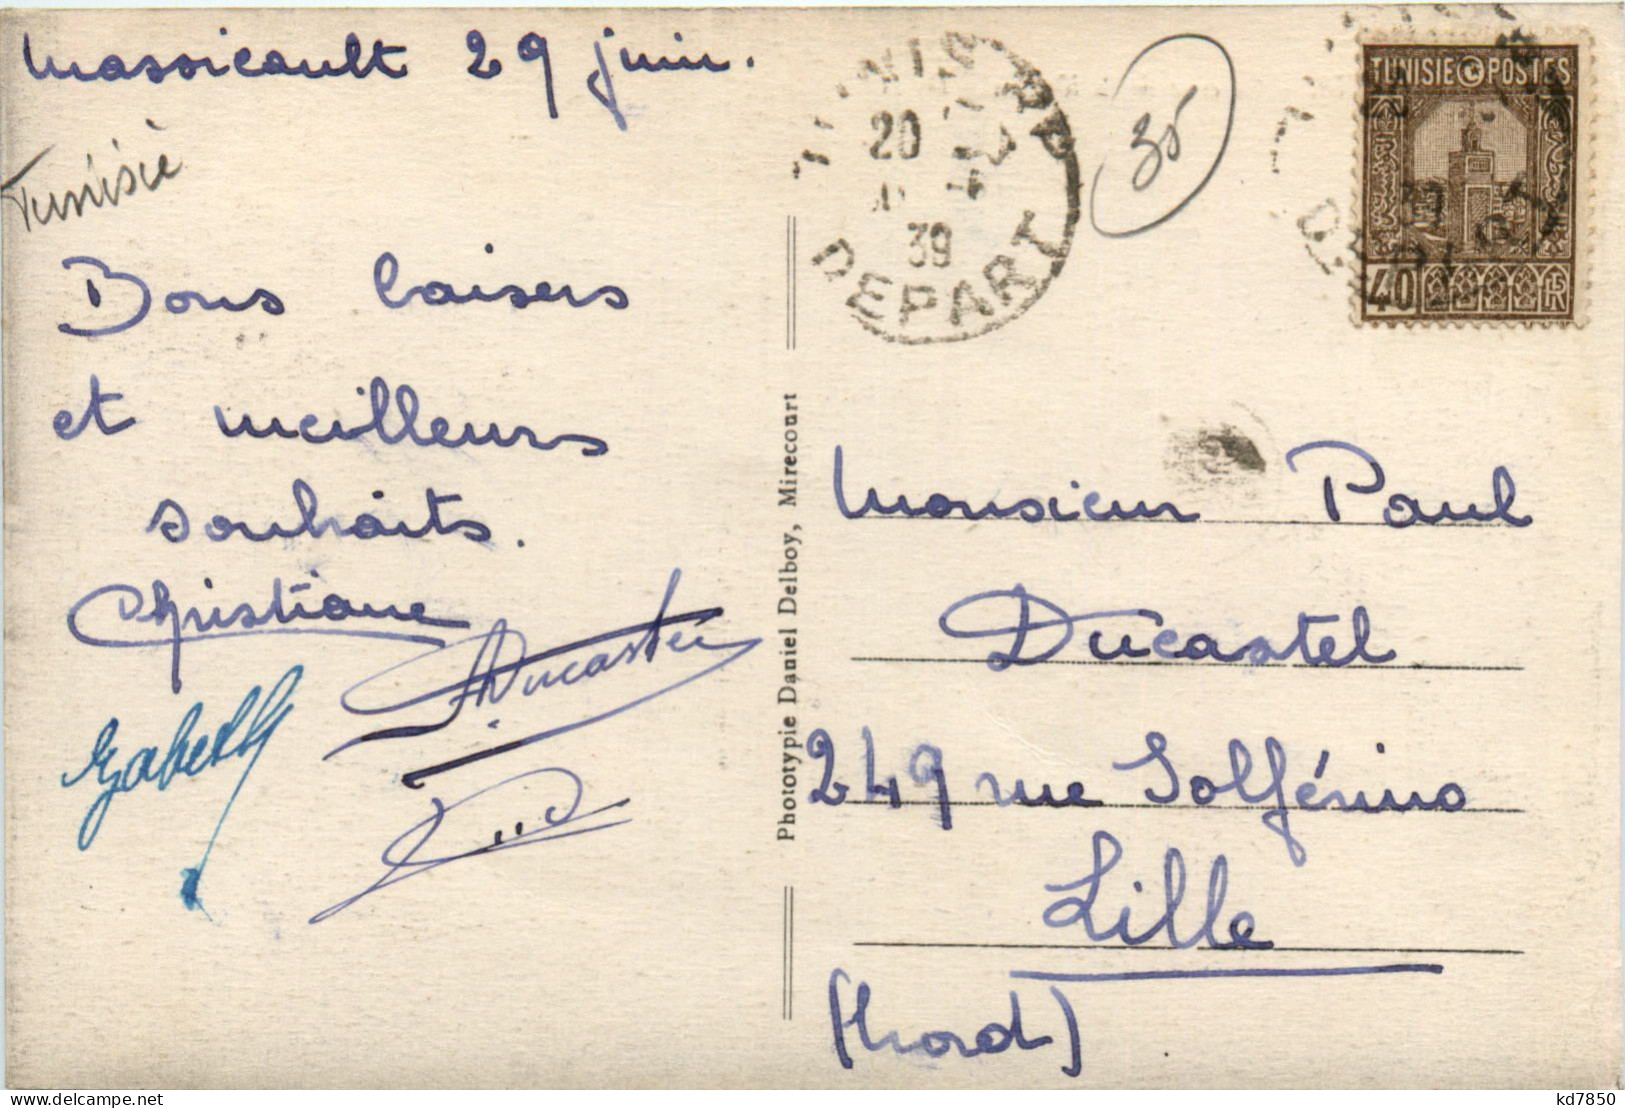 Massicault 29 juin.
Tunisie
Bons baisers
et meilleurs
souhaits.
Christiane
Ducastel
TUNIS RP
20
39
DEPART
35
TUNISIE POSTES
40
39
Phototypie Daniel Delboy, Mirecourt
Monsieur Paul
Ducastel
249 rue Solférino
Lille
(Nord)
kd7850